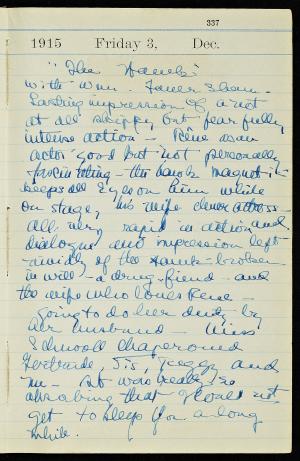 337
1915 Friday 3, Dec.
"The Hawk"
with Wm. Faversham.
Lasting impression of a not
at all skippy, but fearfully
intense action - Rêne as an
actor good but not personally
fascinating - the hawk magnetic
keeps all eyes on him while
on stage, his wife clever actress
all very rapid in action and
dialogue and impression left
of the Hawk - broken
in will - a drug-fiend - and
the wife who loves Rene -
going to do her duty by
her husband - Miss
chaperoned
Gertrude, Sis, Peggy and
me - It was really so
absorbing that I could not
get to sleep for a long
while.